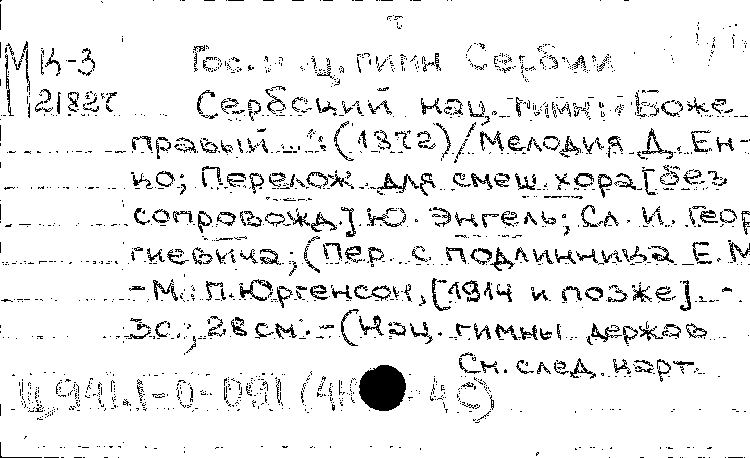 М К-3 Гос. и нац. гимн Сербии
2182т Сербский нац. гимн: "Боже
правый...": (1872)/Мелодия Д. Ен-
ко; Перелож. для смеш. хора [без
сопровожд.] Ю. Энгель; Сл. И. Геор
гиевича; (Пер. с подлинника Е. М
- М.: П. Юргенсон, [1914 и позже]. -
3с.; 28см. - (Нац. гимны держав
См. след. карт.
Ц941.1-0-091 (4